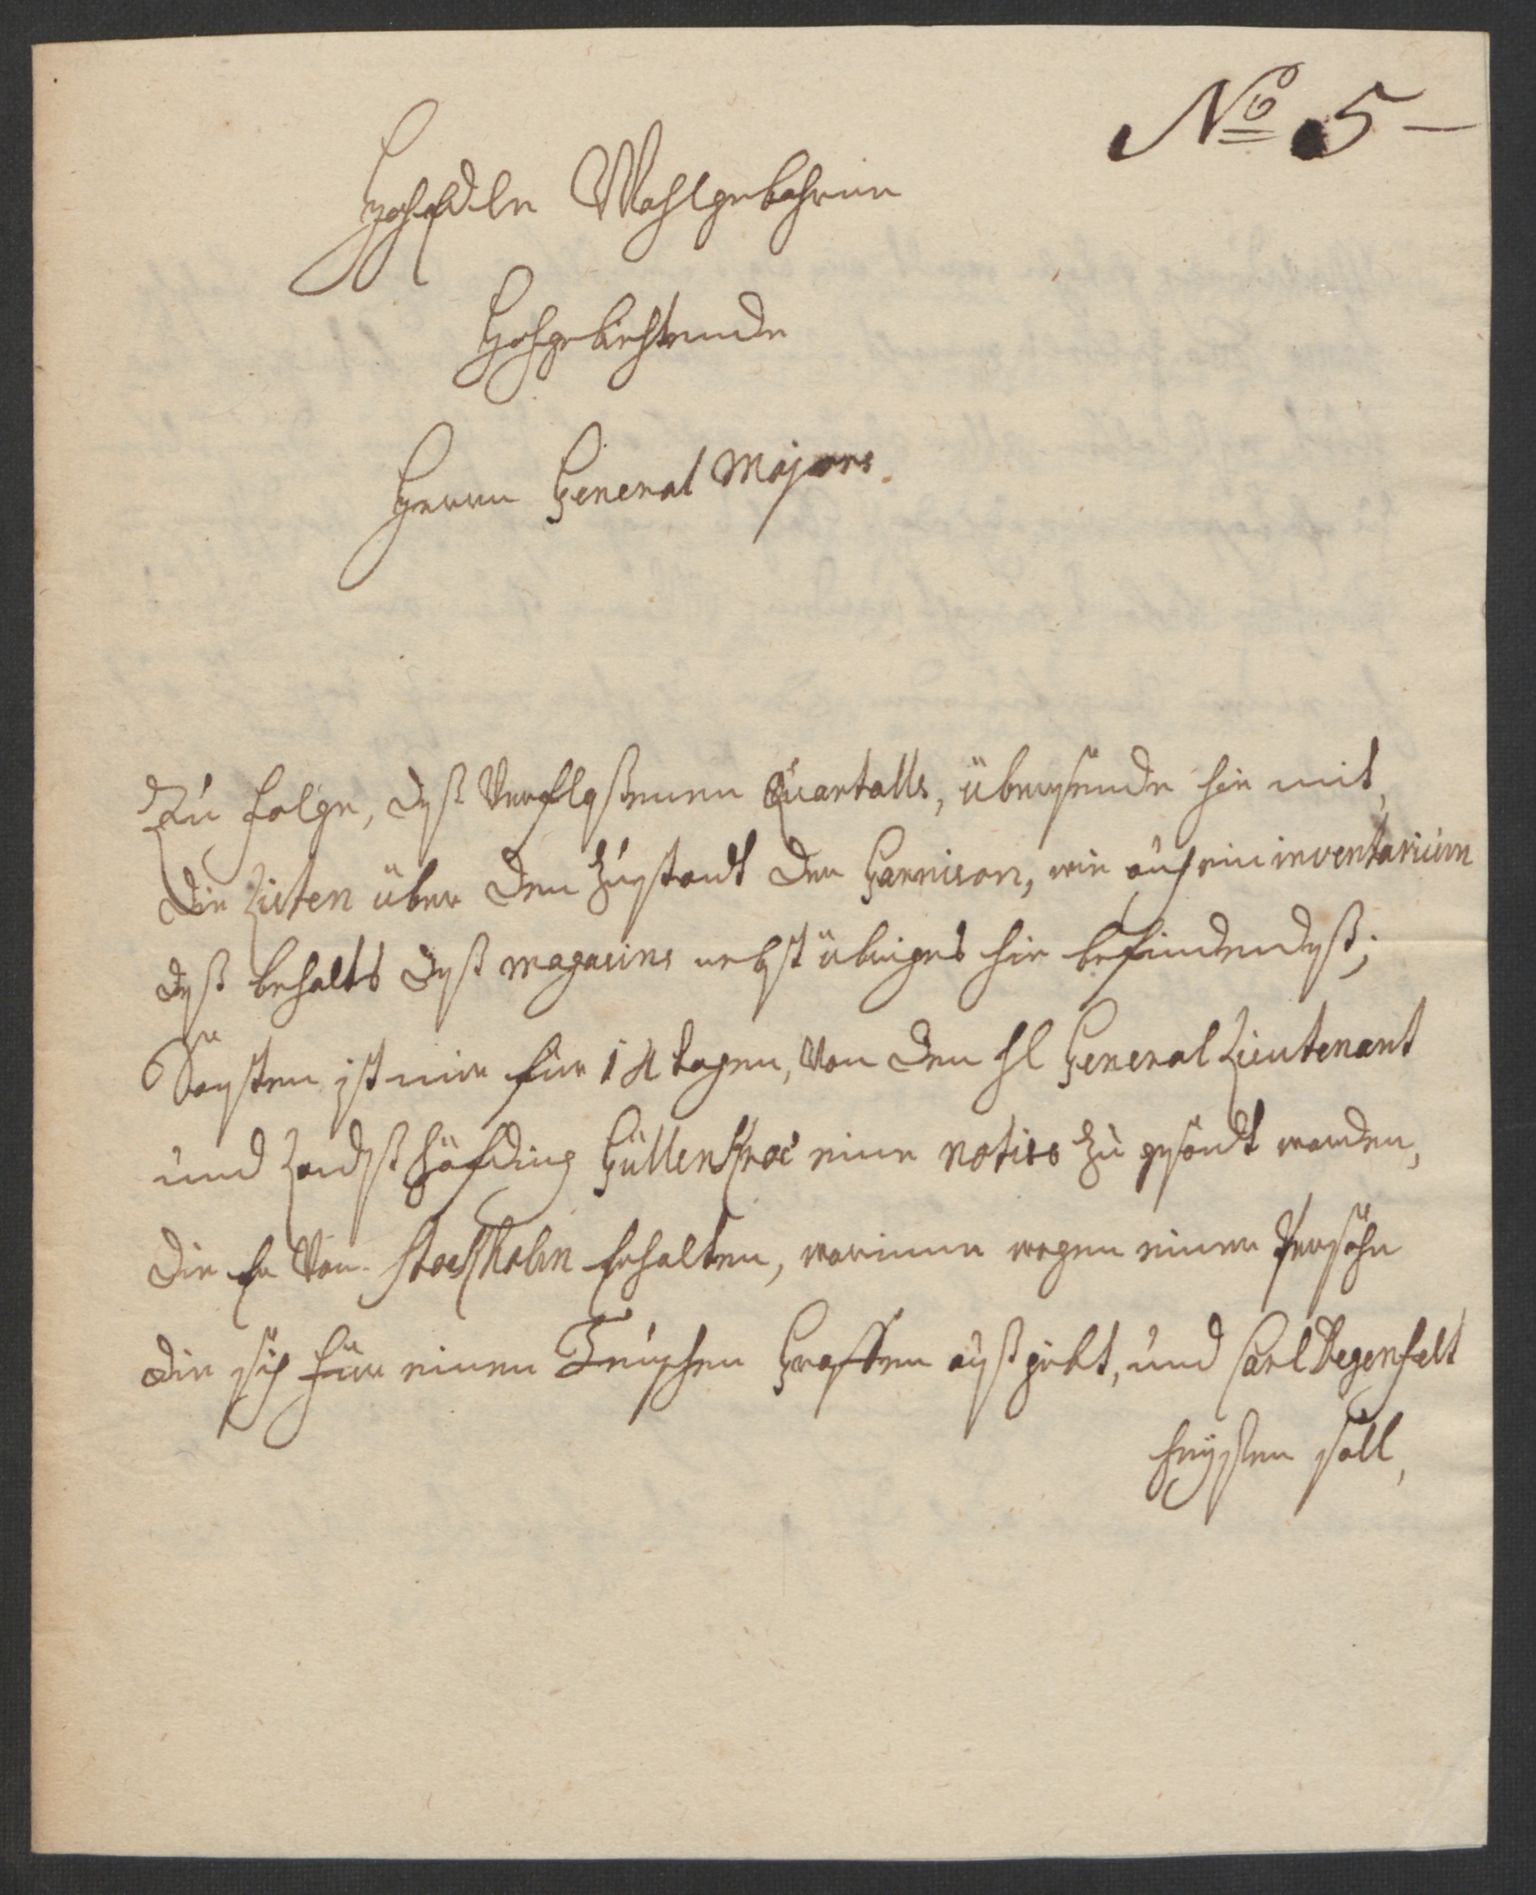 No 5 –
HochEdle Wohlgebohrne
Hochgebietende
Herrn General Majors.
Zu folge, deß verfloßenen Quartalls, übersende hie mit,
die Listen über den Zustandt der Garnison, wie auch ein inventarium
deß behalts deß magasins nebst übriges hie befindendeß;
Sonsten ist mir für 14 tagen, von den H General Lieutenant
und Landßhöfding Güllenkroc eine notiss zu gesandt worden,
die Er von Stockholm Erhalten, worinne wegen einer Persohn
die sich für einen Teuschen Graffen außgiebt, und Carl Degenfelt
heyßen soll,